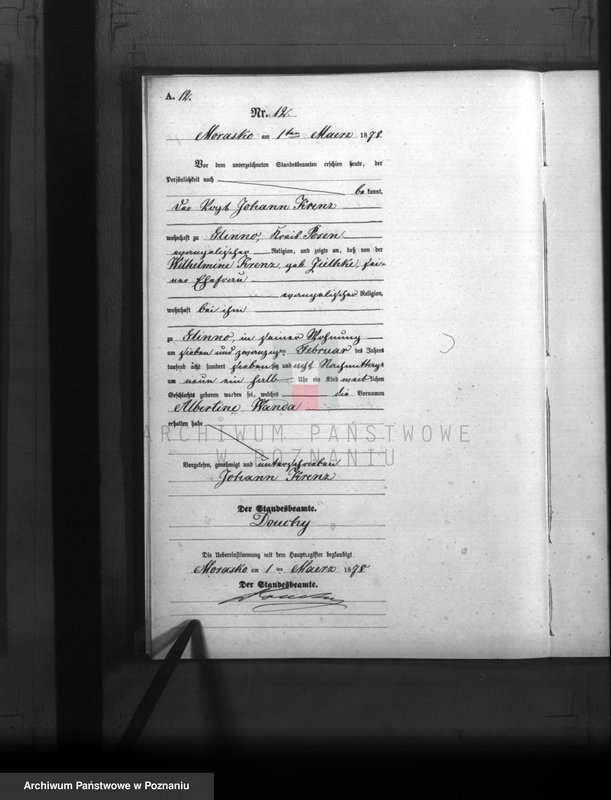 A. 12.
Nr. 12.
Morasko am 1ten Maerz 1878
Vor dem unterzeichneten Standesbeamten erschien heute, der
Persönlichkeit nach
be kannt,
der Vogt Johann Krenz
wohnhaft zu Glinno, Kreis Posen
evangelischer Religion, und zeigte an, daß von der
Wilhelmine Krenz, geb. Zielhke, sei-
ner Ehefrau
evangelischer Religion,
wohnhaft bei ihm
zu Glinno, in seiner Wohnung
am sieben und zwanzigten Februar des Jahres
tausend acht hundert siebenzig und acht Nachmittags
um neun ein halb Uhr ein Kind weiblichen
Geschlechts geboren worden sei, welches die Vornamen
Albertine Wanda
erhalten habe
ARCHIWUM PAŃSTWOWE
W POZNANIU
Vorgelesen, genehmigt und unterschrieben
Johann Krenz
Der Standesbeamte.
Douchy
Die Uebereinstimmung mit dem Hauptregister beglaubigt
Morasko am 1 ten Maerz 1878
Der Standesbeamte.
Archiwum Państwowe w Poznaniu